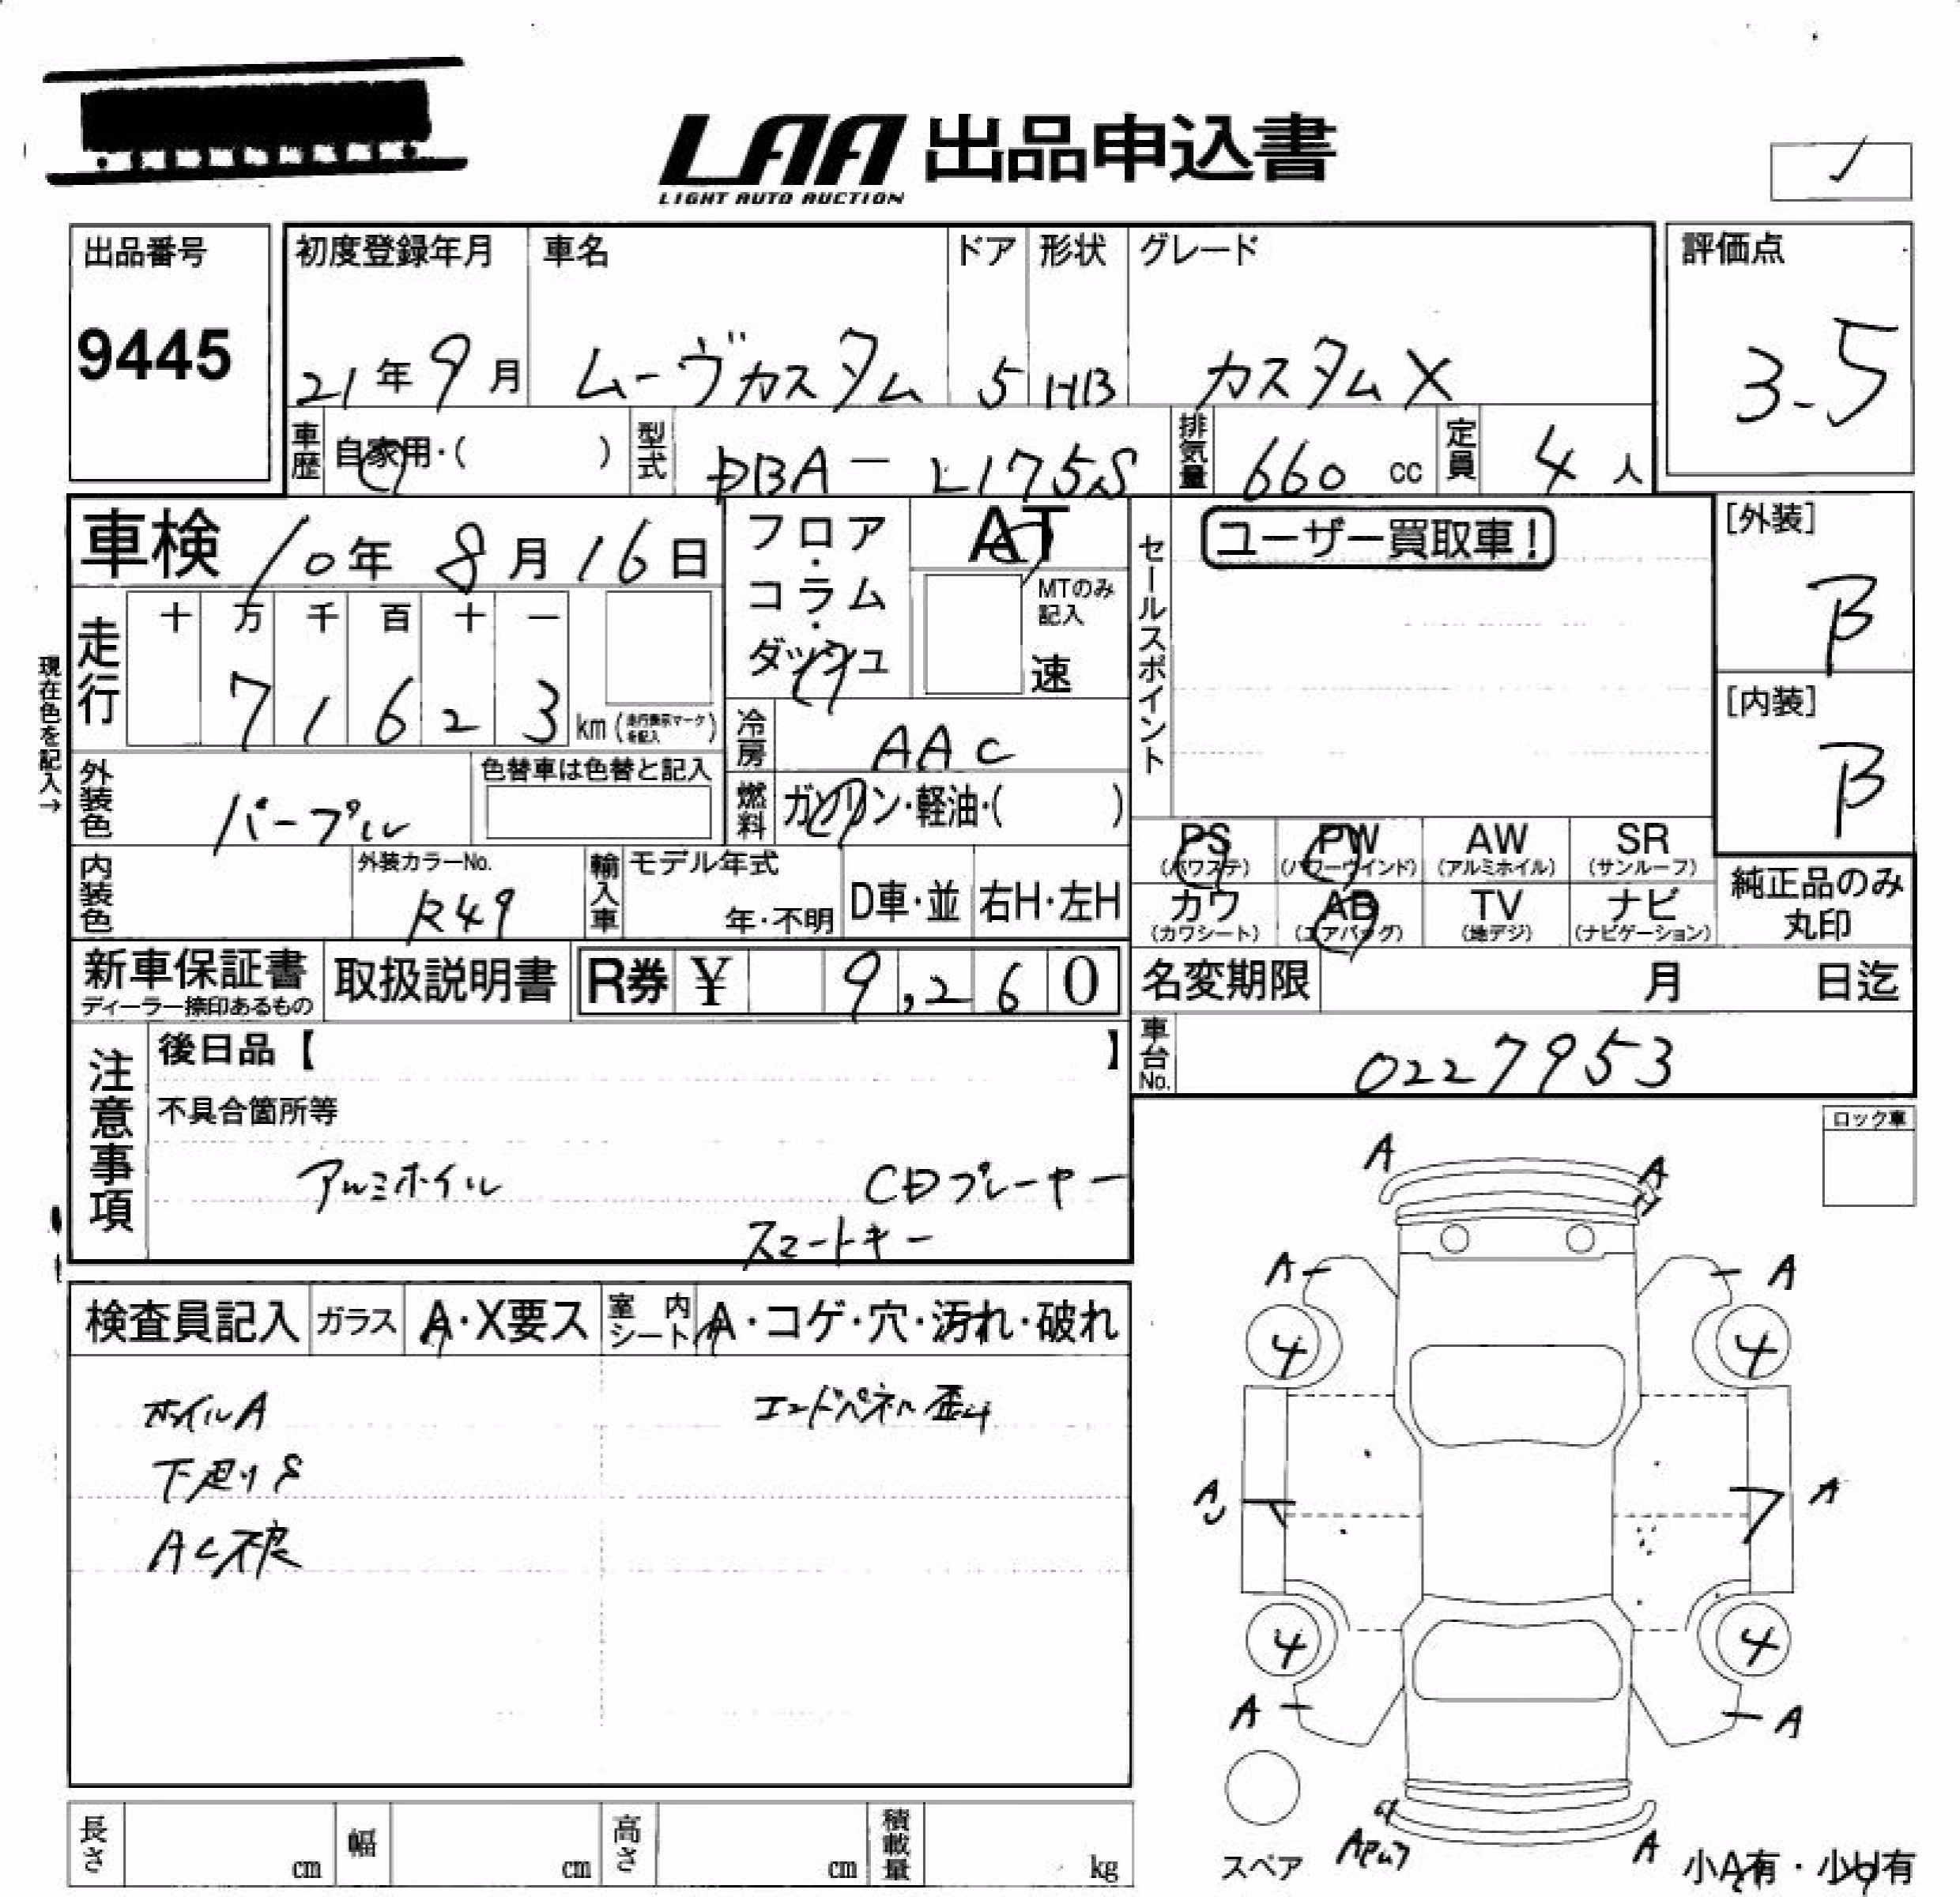 LAA 出品申込書
LIGHT AUTO AUCTION
出品番号
9445
初度登録年月
21年9月
車名
ムーヴカスタム
ドア
5
形状
HB
グレード
カスタムX
評価点
3.5
車歴 自家用・( )
型式 DBA-L175S
排気量 660 cc
定員 4 人
車検 10年8月16日
フロア・コラム・ダッシュ
AT
MTのみ記入
速
セールスポイント
ユーザー買取車!
[外装]
B
[内装]
B
現在色を記入→
走行 十 万 千 百 十 一
7 1 6 2 3 km (走行表示マークを記入)
冷房 AAC
外装色 パープル
色替車は色替と記入
燃料 ガソリン・軽油・( )
PS (パワステ) PW (パワーウインド) AW (アルミホイル) SR (サンルーフ)
カワ (カワシート) AB (エアバッグ) TV (地デジ) ナビ (ナビゲーション)
純正品のみ丸印
内装色
外装カラーNo.
R49
輸入車 モデル年式
年・不明 D車・並 右H・左H
新車保証書
ディーラー捺印あるもの
取扱説明書
R券 ¥ 9,260
名変期限 月 日迄
車台No. 0227953
注意事項
後日品【 】
不具合箇所等
アルミホイル CDプレーヤー
スマートキー
ロック車
検査員記入 ガラス A・X要ス 室内シート A・コゲ・穴・汚れ・破れ
ホイルA エンドパネル歪み
下廻りS
AC不良
A A
A A
4 4
A A
4 4
A A
A
スペア
小A有・小U有
長さ cm 幅 cm 高さ cm 積載量 kg